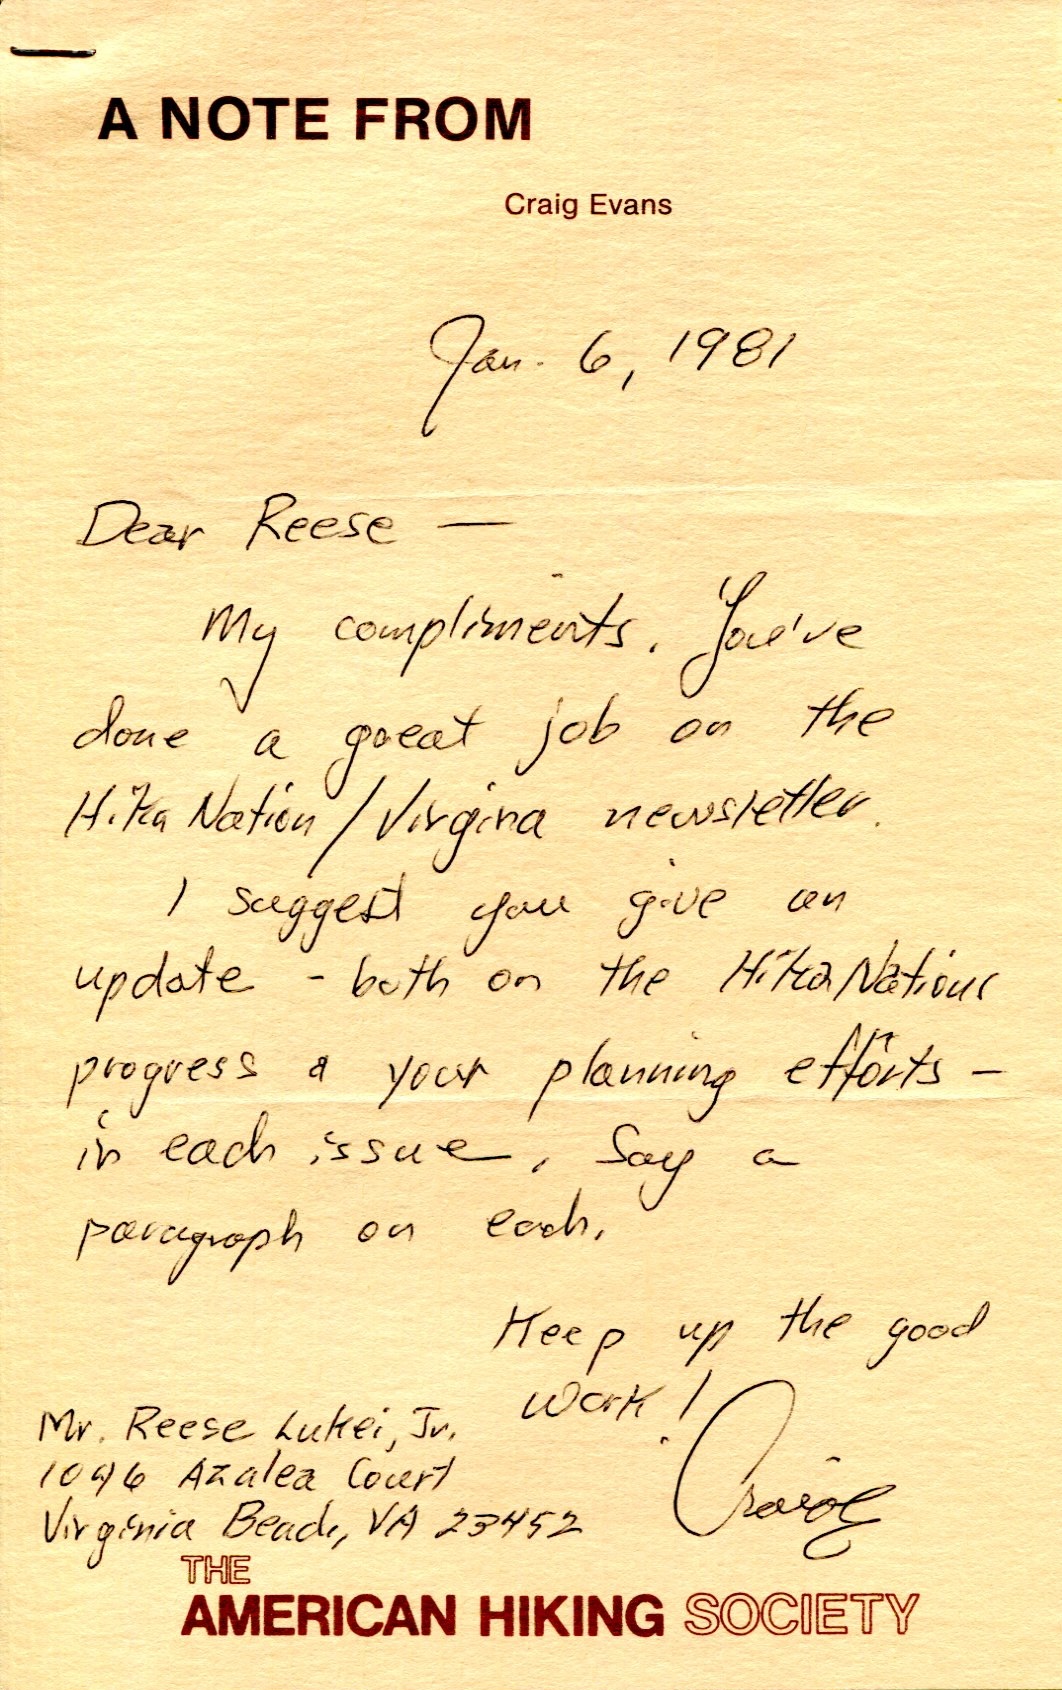 A NOTE FROM
Craig Evans
Jan. 6, 1981
Dear Reese —
My compliments. You've
done a great job on the
HikaNation/Virgina newsletter.
I suggest you give an
update - both on the HikaNations
progress & your planning efforts -
in each issue. Say a
paragraph on each.
Keep up the good
work!
Craig
Mr. Reese Lukei, Jr.
1096 Azalea Court
Virginia Beach, VA 23452
THE
AMERICAN HIKING SOCIETY